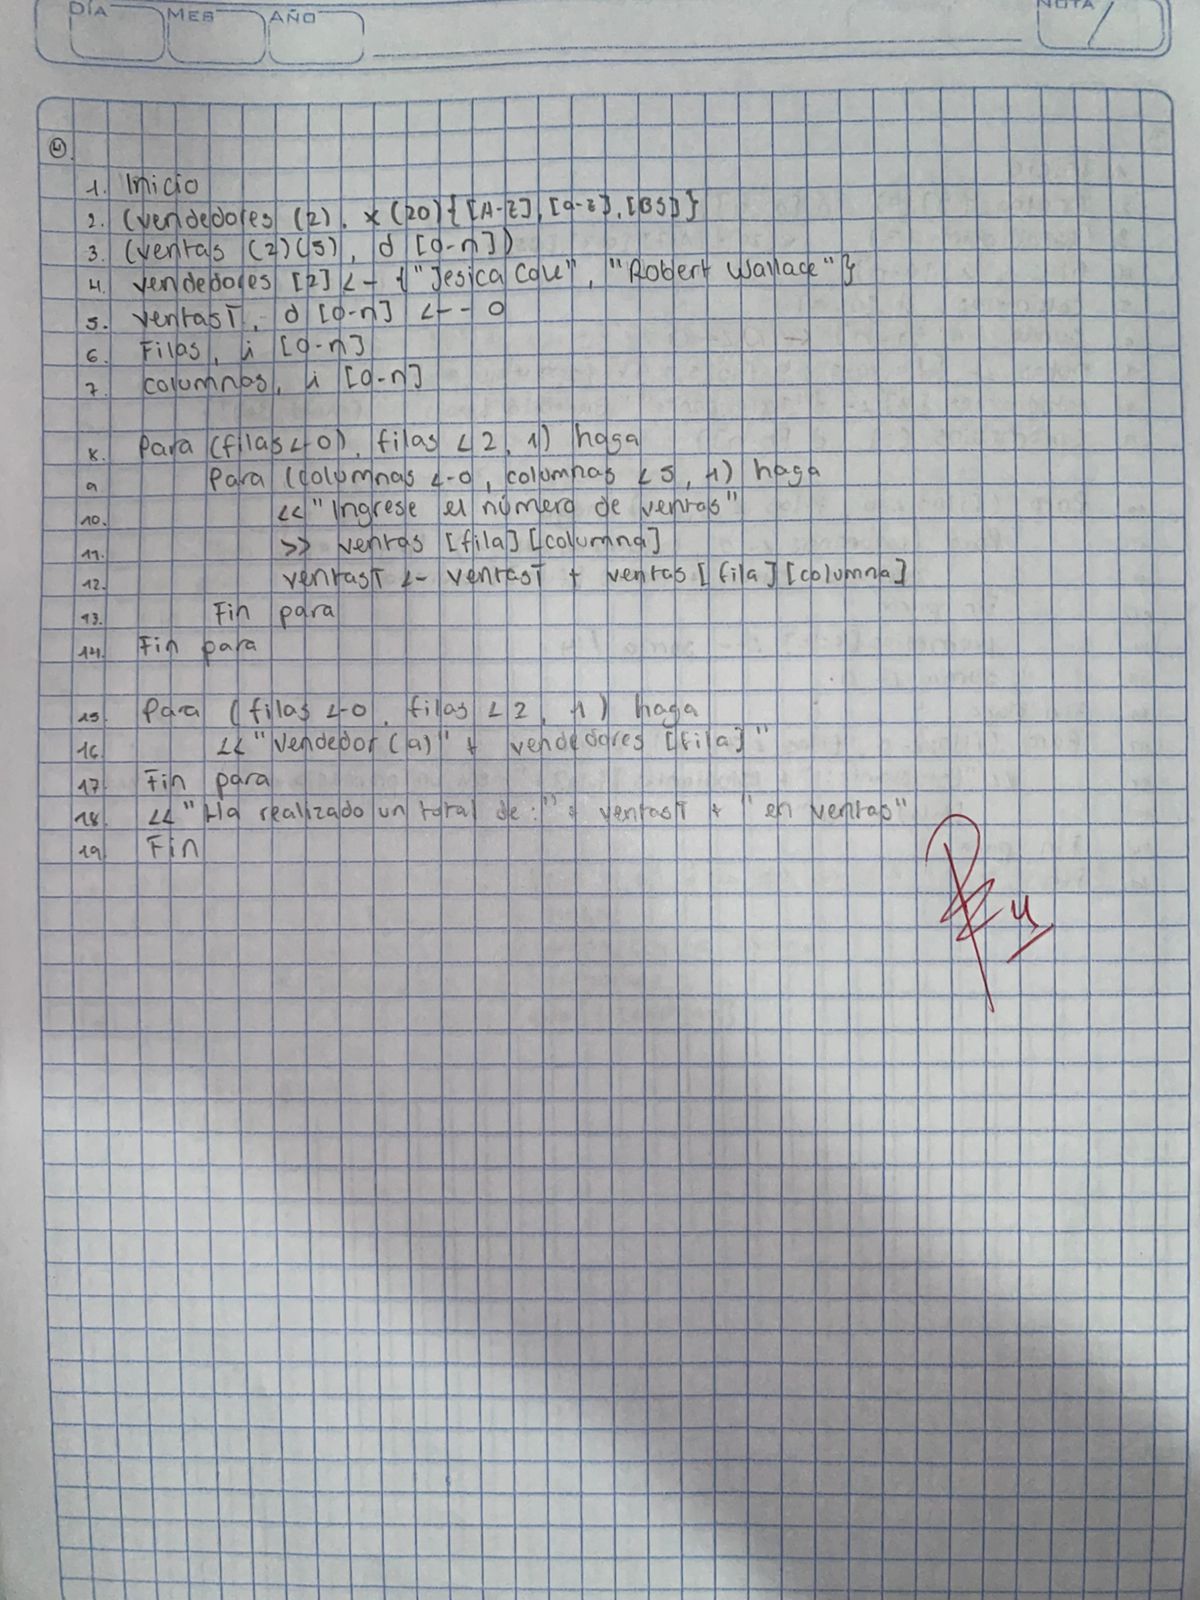 DÍA MES AÑO NOTA
4.
1. Inicio
2. (vendedores (2), x (20) { [A-Z], [a-z], [BS] }
3. (ventas (2)(5), d [0-n])
4. vendedores [2] <- { "Jesica Cole", "Robert Wallace" }
5. ventasT, d [0-n] <-- 0
6. Filas, i [0-n]
7. columnas, i [0-n]
8. Para (filas <-0), filas < 2, 1) haga
9 Para (columnas <-0, columnas < 5, 1) haga
10. << "Ingrese el número de ventas"
11. >> ventas [fila] [columna]
12. ventasT <- ventasT + ventas [fila] [columna]
13. Fin para
14. Fin para
15. Para (filas <-0, filas < 2, 1) haga
16. << "Vendedor (a)" + vendedores [fila]"
17. Fin para
18. << "Ha realizado un total de:" + ventasT + "en ventas"
19. Fin
4